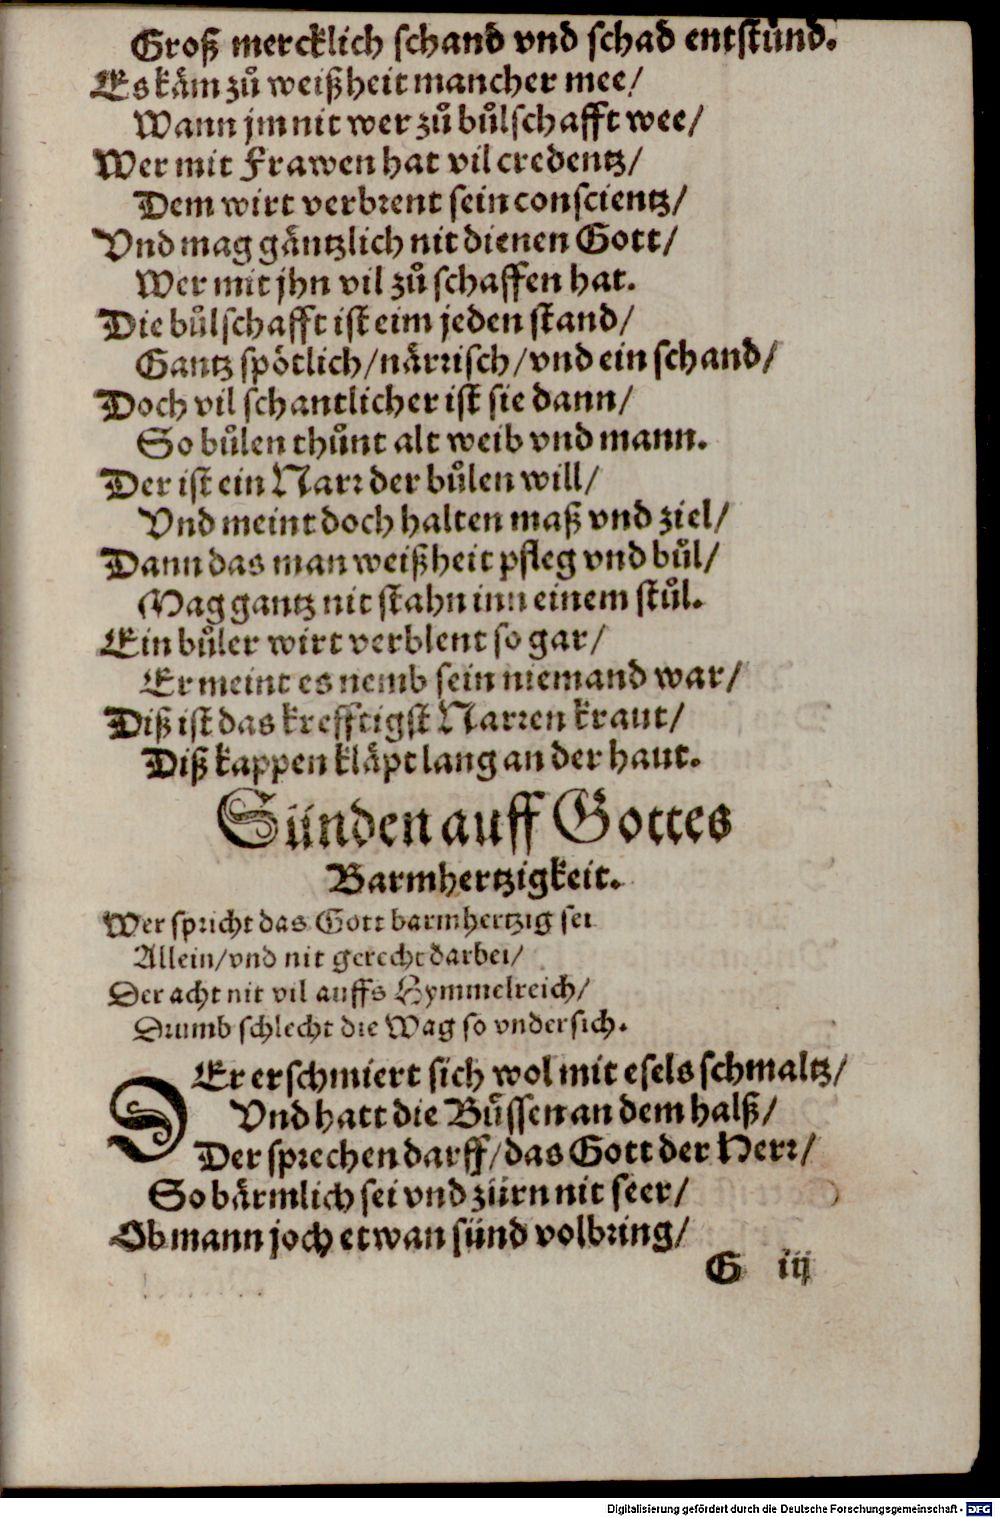 Groß mercklich schand vnd schad entstünd.
Es käm zů weißheit mancher mee/
Wann jm nit wer zů bůlschafft wee/
Wer mit Frawen hat vil credentz/
Dem wirt verbrent sein conscientz/
Vnd mag gäntzlich nit dienen Gott/
Wer mit jhn vil zů schaffen hat.
Die bůlschafft ist eim jeden stand/
Gantz spötlich/närrisch/vnd ein schand/
Doch vil schantlicher ist sie dann/
So bůlen thůnt alt weib vnd mann.
Der ist ein Narr der bůlen will/
Vnd meint doch halten maß vnd ziel/
Dann das man weißheit pfleg vnd bůl/
Mag gantz nit stahn inn einem stůl.
Ein bůler wirt verblent so gar/
Er meint es nemb sein niemand war/
Diß ist das krefftigst Narren kraut/
Diß kappen kläpt lang an der haut.
Sünden auff Gottes
Barmhertzigkeit.
Wer spricht das Gott barmhertzig sei
Allein/vnd nit gerecht darbei/
Der acht nit vil auffs Hymmelreich/
Drumb schlecht die Wag so vndersich.
DEr erschmiert sich wol mit esels schmaltz/
Vnd hatt die Bůssen an dem halß/
Der sprechen darff/das Gott der Herr/
So bärmlich sei vnd zürn nit seer/
Ob mann joch etwan sünd volbring/
G iij
Digitalisierung gefördert durch die Deutsche Forschungsgemeinschaft - DFG